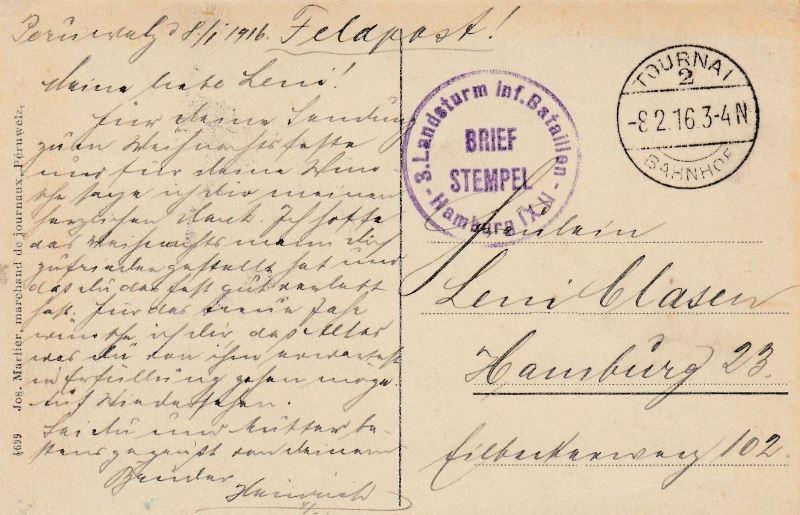 Peruwelz d 8/I 1916. Feldpost!
Meine liebe Leni!
Für deine Sendung
zum Weihnachtsfeste
und für deine Wün
sche sage ich dir meinen
herzlichen Dank. Ich hoffe
das Weihnachtsmann dich
zufriedengestellt hat und
das du das Fest gut verlebt
hast. Für das neue Jahr
wünsche ich dir das Alles
was du von ihm erwartest
in Erfüllung gehen möge.
Auf Wiedersehen.
Sei du und Mutter be-
stens gegrüßt von deinem
Bruder
Heinrich
3. Landsturm Inf. Bataillon - Hamburg IX
BRIEF
STEMPEL
TOURNAI
2
-8 2.16.3-4N
BAHNHOF
Fräulein
Leni Clasen
Hamburg 23.
Eilbeckerweg 102.
4699 Jos. Marlier, marchand de journaux, Péruwelz.